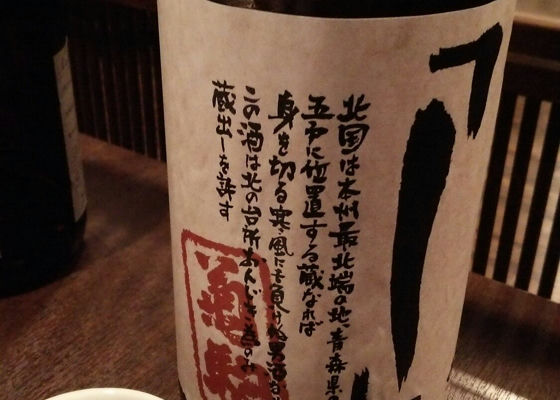 北国は本州最北端の地、青森県の
五戸に位置する蔵なれば
身を切る寒風にも負けぬ男酒
この酒は北の台所おんどき為のみ
蔵出しを許す
菊駒